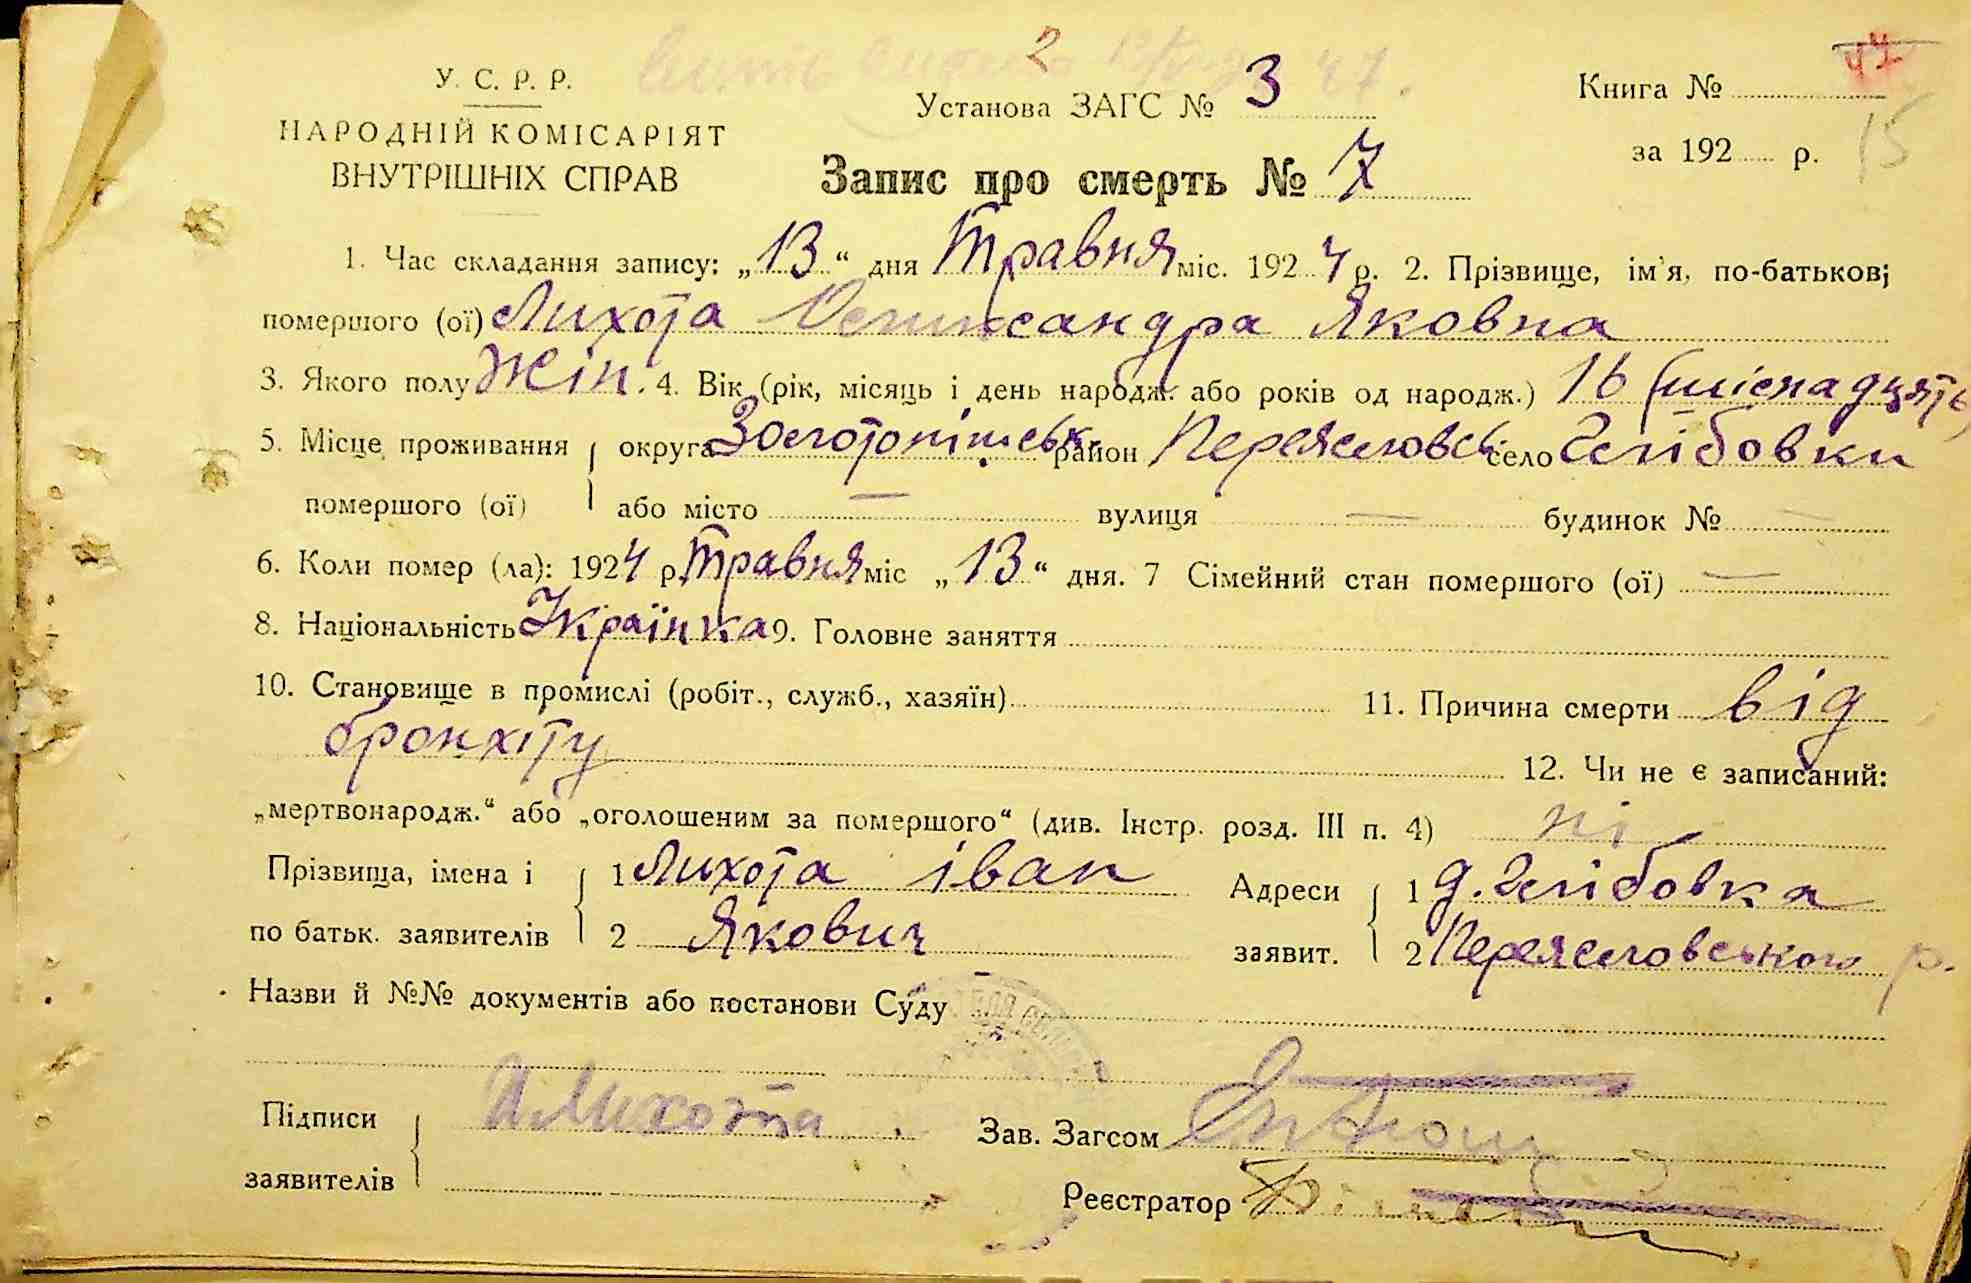 2
У. С. Р. Р.
НАРОДНІЙ КОМІСАРІЯТ
ВНУТРІШНІХ СПРАВ
Установа ЗАГС № 3
Запис про смерть № 7
Книга №
за 192 р. 15
1. Час складання запису: „13“ дня Травня міс. 1924 р. 2. Прізвище, ім'я, по-батькові
помершого (ої) Лихота Олександра Яковна
3. Якого полу Жін. 4. Вік (рік, місяць і день народж. або років од народж.) 16 (шіснадцять)
5. Місце проживання округа Золотонішськ район Переясловськ село Глібовки
помершого (ої) або місто — вулиця — будинок № —
6. Коли помер (ла): 1924 р. Травня міс „13“ дня. 7 Сімейний стан помершого (ої) —
8. Національність Українка 9. Головне заняття
10. Становище в промислі (робіт., служб., хазяїн) 11. Причина смерти від
бронхіту 12. Чи не є записаний:
„мертвонародж.“ або „оголошеним за помершого“ (див. Інстр. розд. III п. 4) ні
Прізвища, імена і 1 Лихота Іван Адреси 1 д. Глібовка
по батьк. заявителів 2 Якович заявит. 2 Переясловського р.
Назви й №№ документів або постанови Суду
Підписи И Лихота Зав. Загсом
заявителів Реєстратор